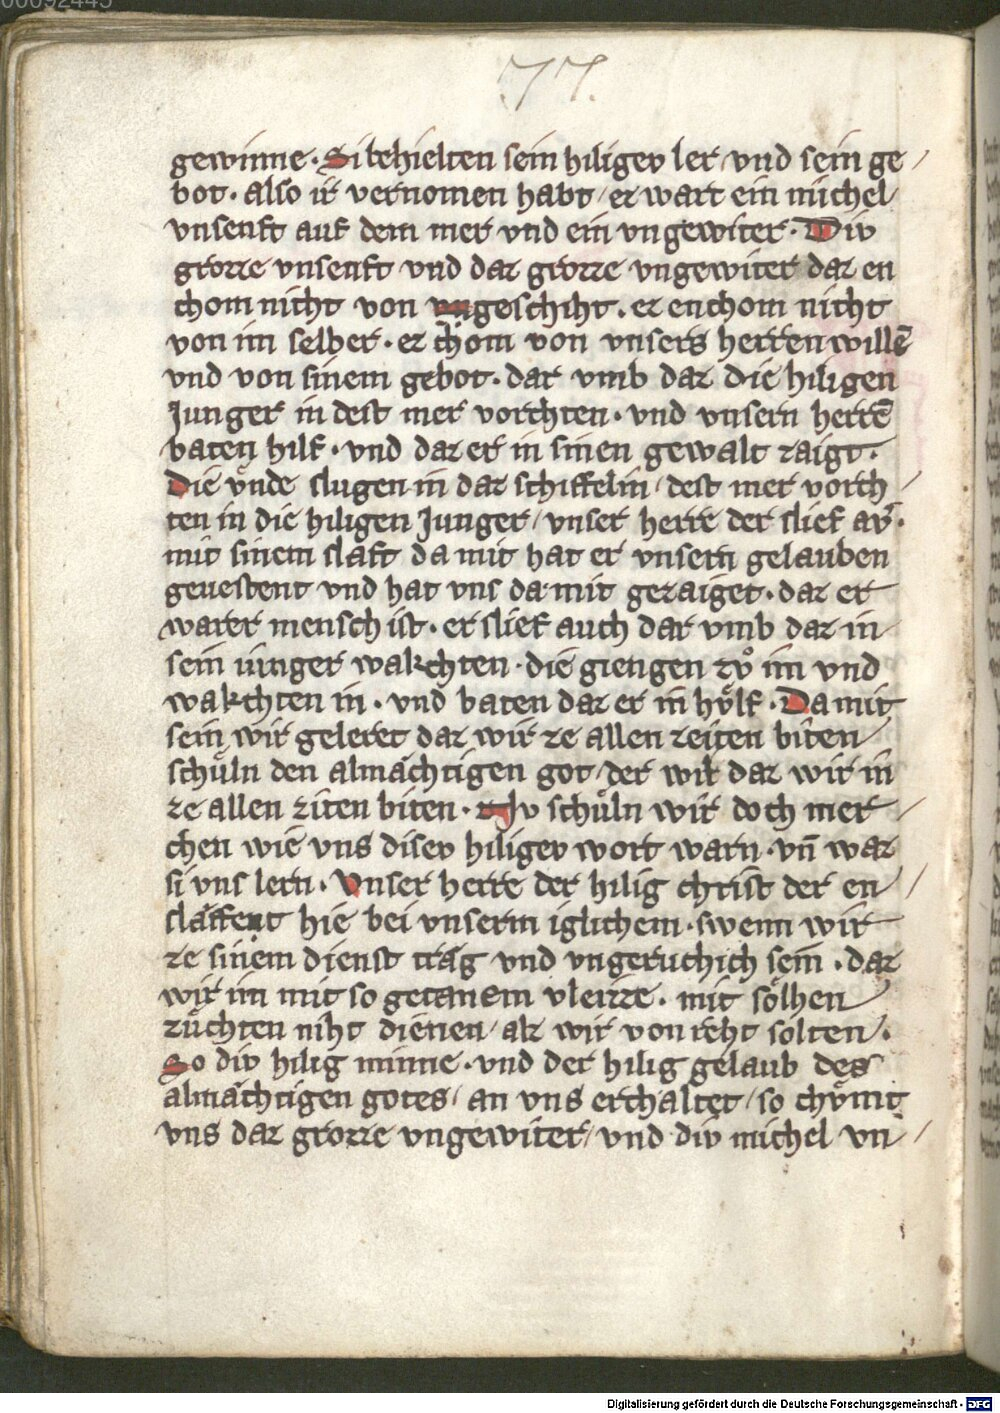 00092445
77.
gewinne · Si behielten sein hiligev ler / vnd sein ge /
bot · also ir vernomen habt / er wart ein michel
vnsenft auf dem mer vnd ein vngewiter · Div
grozze vnsenft vnd daz grozze vngewiter daz en
chom nicht von vngeschiht . er enchom nicht
von im selber · er chom von vnsers herren willē
vnd von sinem gebot · dar vmb daz die hiligen
Junger in dest mer vorchten · vnd vnsern herrē
baten hilf · vnd daz er in sinen gewalt zaigt ·
Die vͦnde slugen in daz schiffelin / dest mer vorch /
ten in die hiligen Junger / vnser herre der slief av̇ ·
mit sinem slaff da mit hat er vnsern gelauben
geuestent vnd hat vns da mit gezaiget · daz er
warer mensch ist · er slief auch dar vmb daz in
sein iunger wakchten · die giengen zvͦ im vnd
wakchten in · vnd baten daz er in hv̈lf · Da mit
sein wir geleret daz wir ze allen zeiten biten
schuͤln den almaͤchtigen got / der wil daz wir in
ze allen ziten biten · Nv schuͤln wir doch mer /
chen wie vns disev hiligev wort warn · vn̄ waz
si vns lern · Vnser herre der hilig christ der en /
slaͤffent hie bei vnserm iglichem · swenn wir
ze sinem dienst traͤg vnd vngeruchich sein · daz
wir im mit so getanem vleizze · mit soͤlhen
zuͤchten niht dienen / alz wir von reht solten ·
So div hilig minne · vnd der hilig gelaub des
almaͤchtigen gotes / an vns erchaltet / so chvͤmt
vns daz grozze vngewiter / vnd div michel vn /
Digitalisierung gefördert durch die Deutsche Forschungsgemeinschaft - DFG